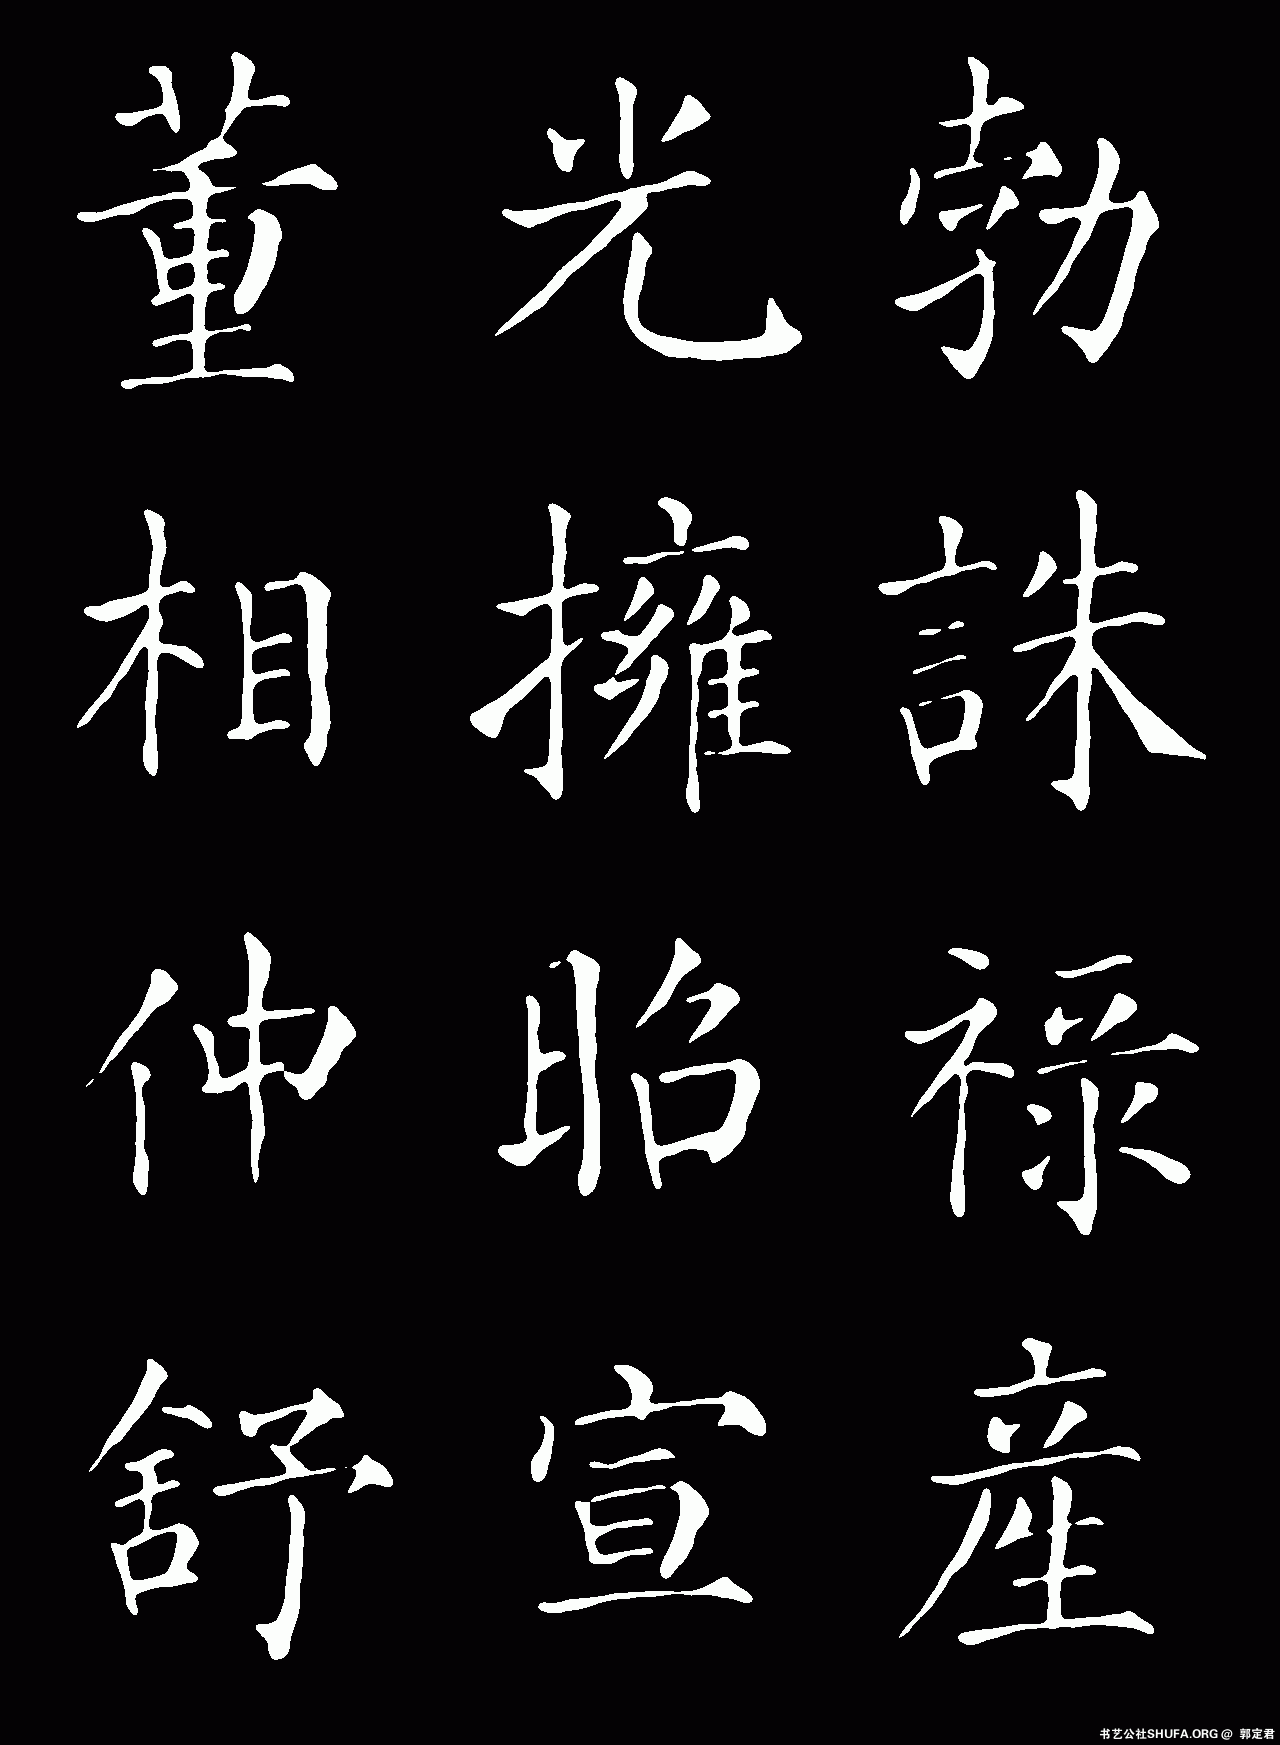 勃誅禄産
光擁昭宣
董相仲舒
书艺公社SHUFA.ORG @ 郭定君